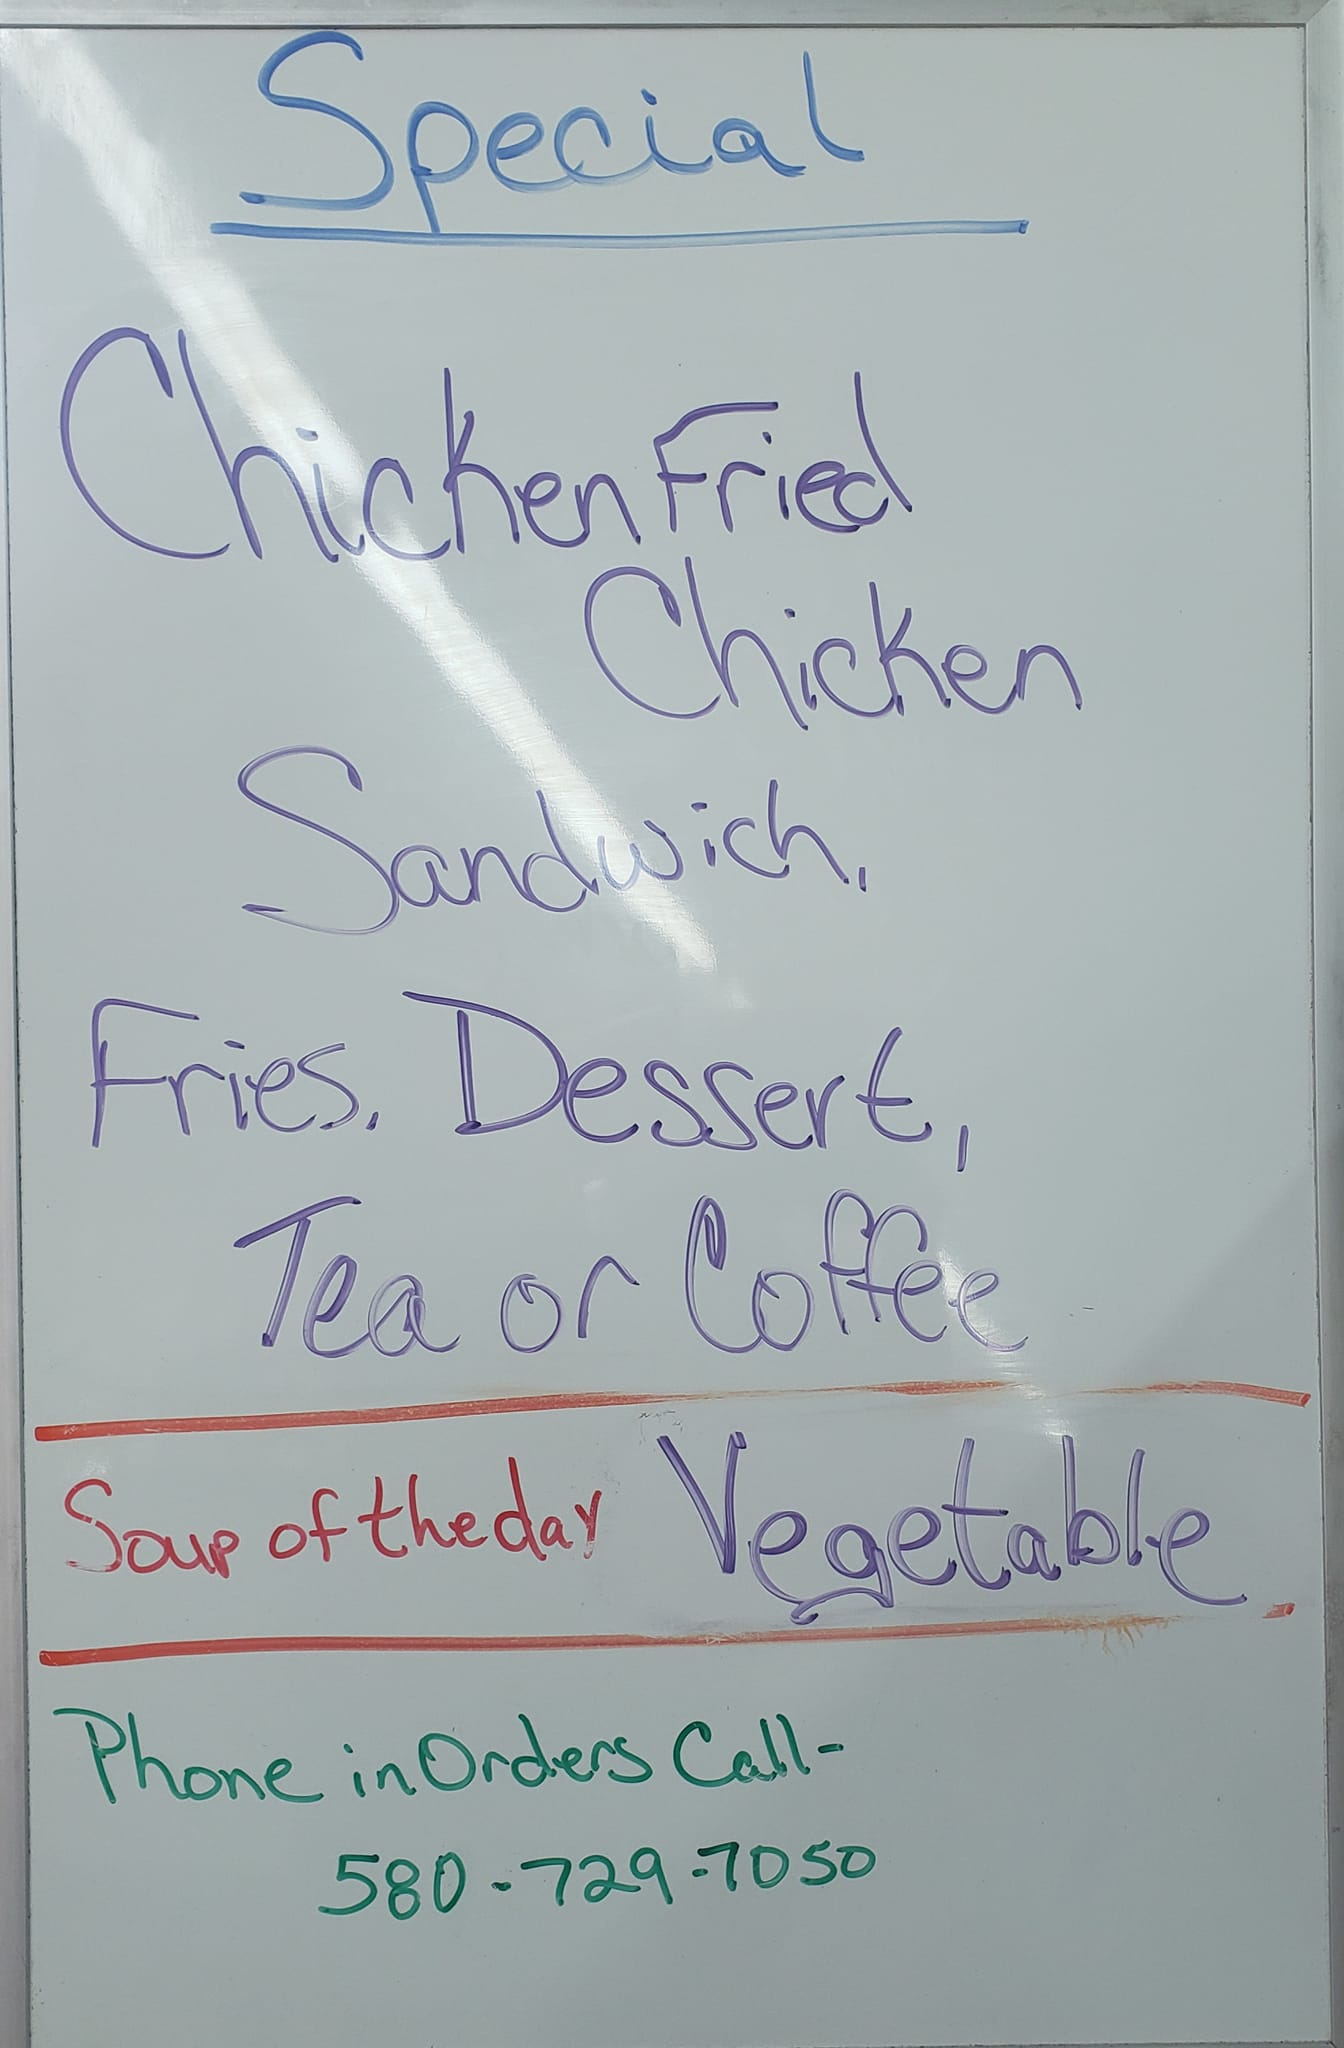 Special
Chicken Fried
Chicken
Sandwich,
Fries, Dessert,
Tea or Coffee
Soup of the day Vegetable
Phone in Orders Call-
580-729-7050